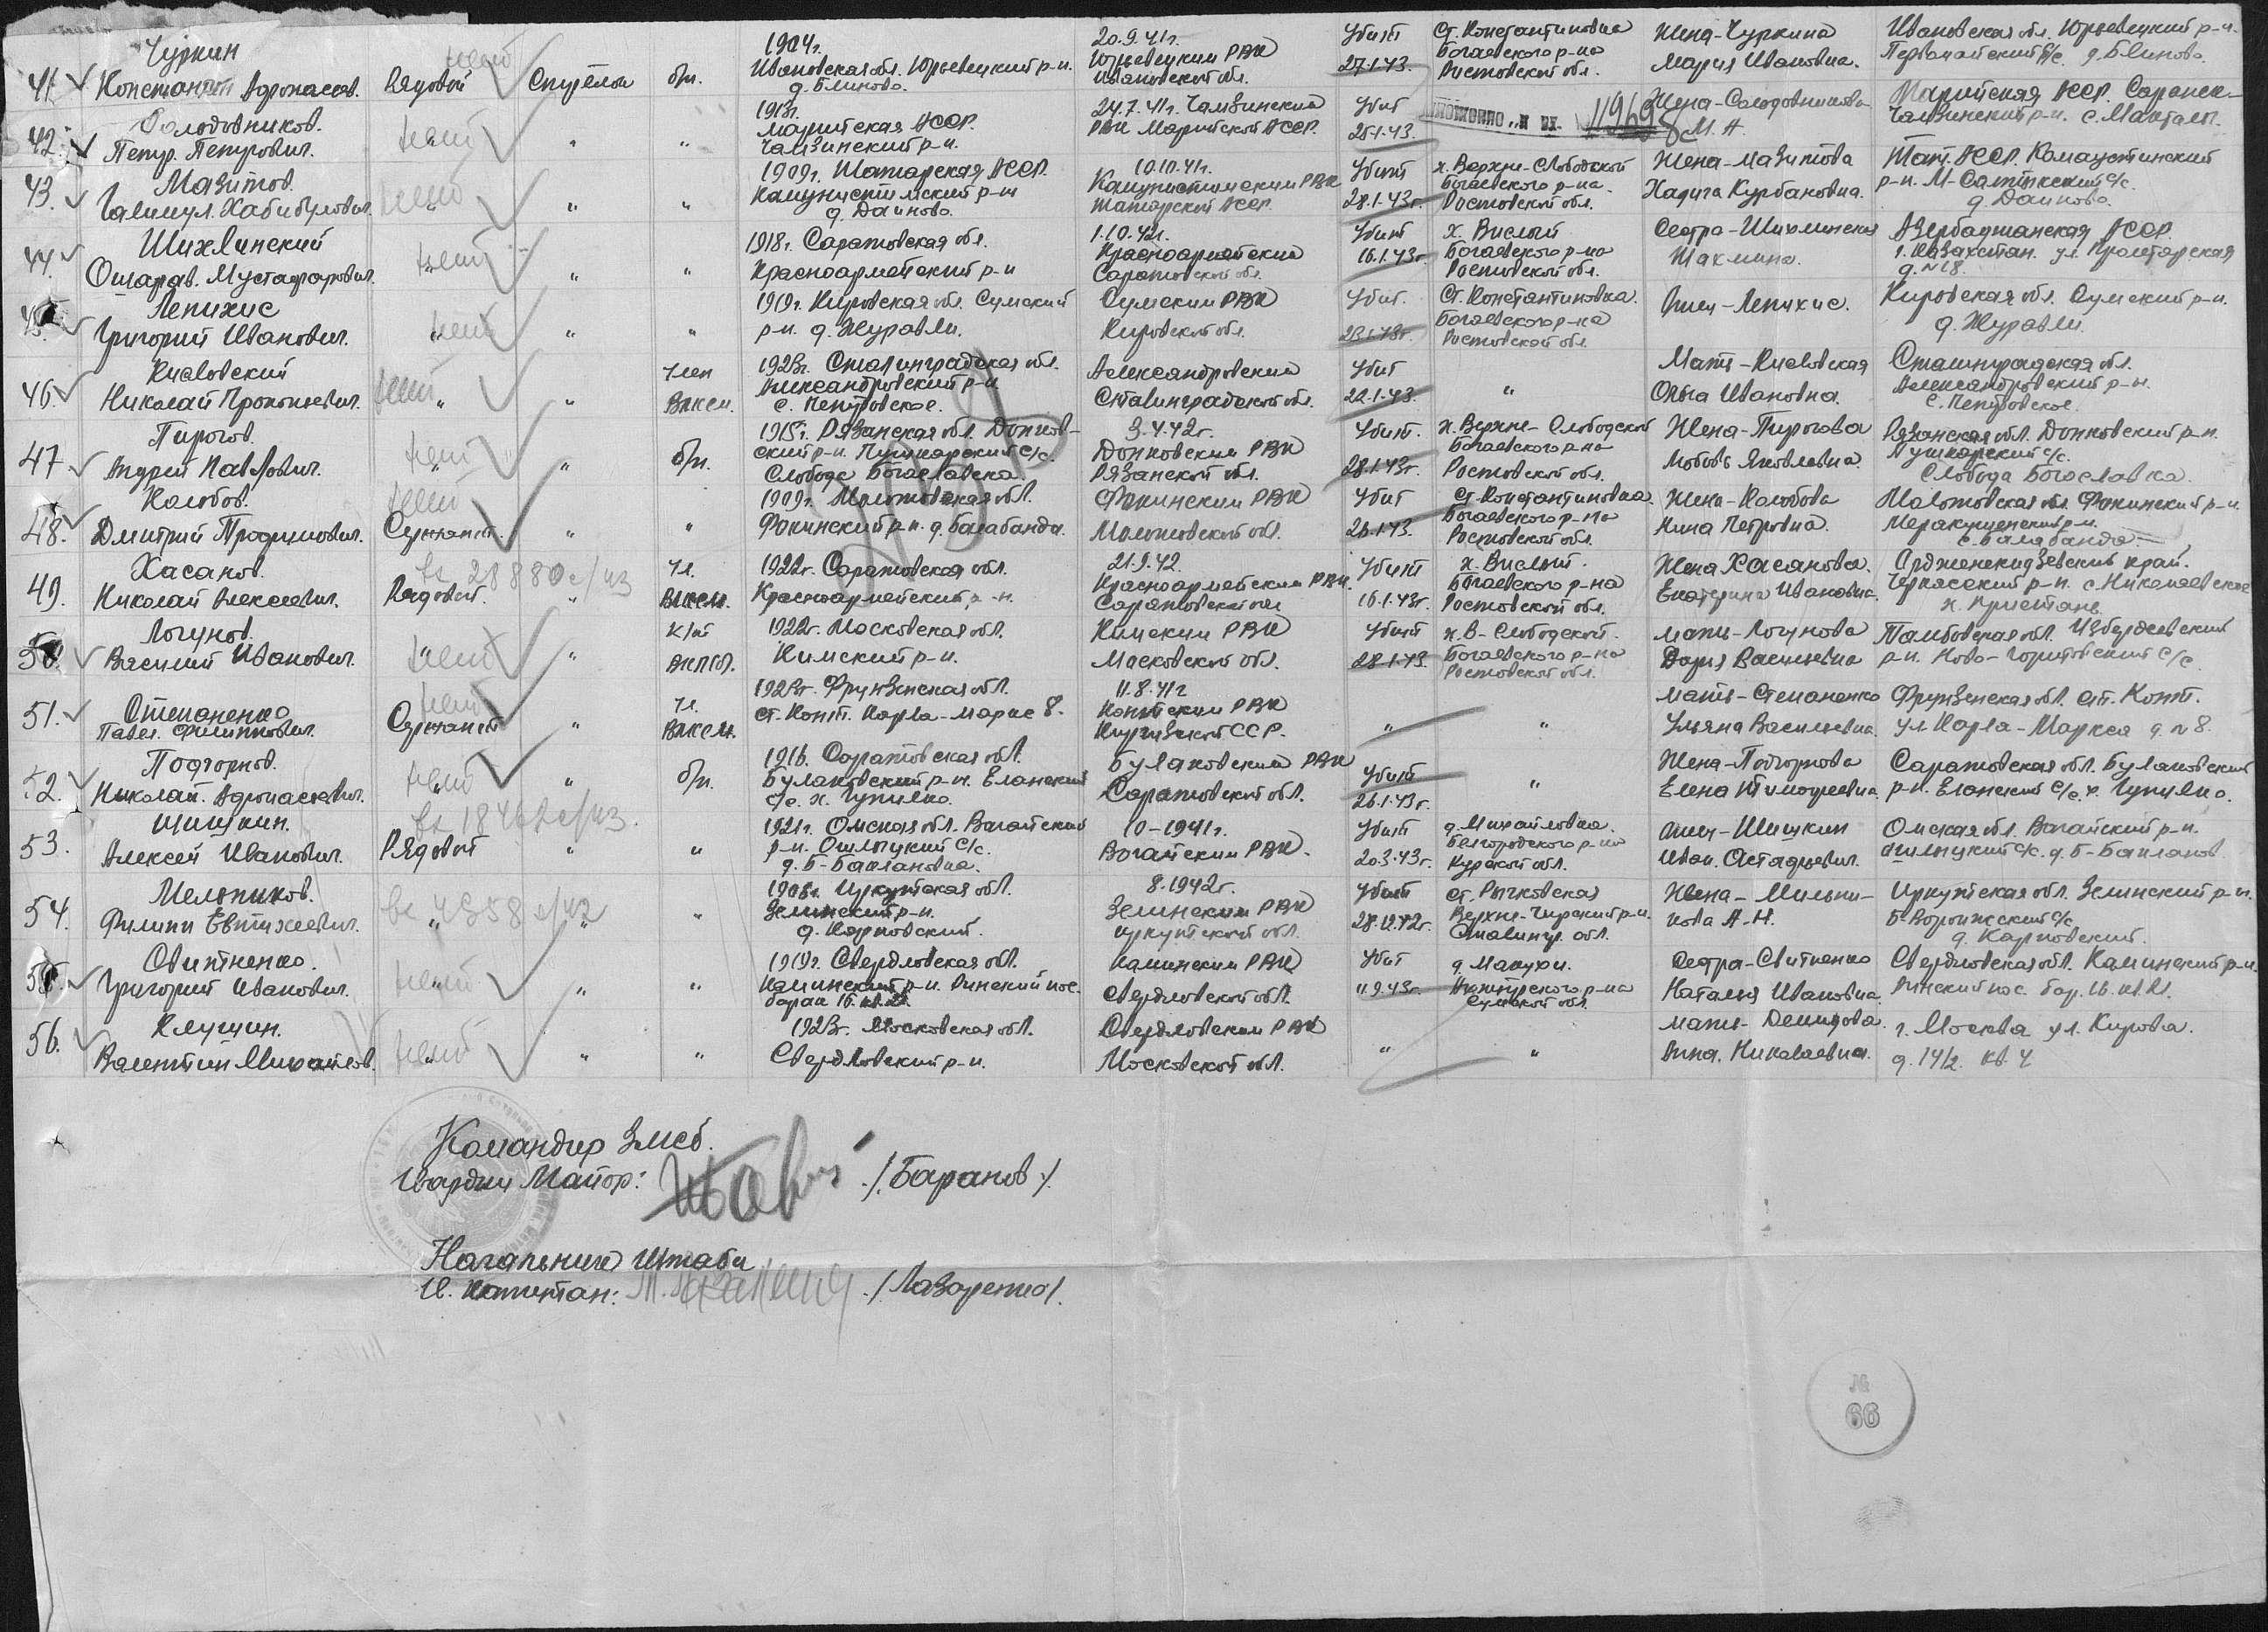 41. Чуркин Константин Афонасьев. Рядовой Стрелок б/п. 1904г. Ивановская обл. Юрьевецкий р-н. д. Блиново. 20.9.41г. Юрьевецким РВК Ивановской обл. Убит 27.1.43. Ст. Константиновка Богаевского р-на Ростовской обл. Жена-Чуркина Мария Ивановна. Ивановская обл. Юрьевецкий р-н. Первомайский с/с. д. Блиново.
42. Солодовников. Петр. Петрович. " " 1913г. Марийская АССР. Чамзинский р-н. 24.7.41г. Чамзинский РВК Марийской АССР. Убит 25.1.43. 11969 Жена-Солодовникова М. А. Марийская АССР. Саранск- Чамзинский р-н. с.
43. Мазитов. Галимул. Хабибулович. " " " 1909г. Татарская АССР. Камунистимский р-н д. Даиново. 10.10.41г. Камунистимским РВК Татарской АССР. Убит 28.1.43г. х. Верхне-Слободской Богаевского р-на. Ростовской обл. Жена-Мазитова Хадича Курбановна. Тат. АССР. Камаустинский р-н. с/с. д. Даиново.
44. Шихлинский Ошарав. Мустафарович. " " " 1918г. Саратовская обл. Красноармейский р-н 1.10.42г. Красноармейским Саратовской обл. Убит 16.1.43г. х. Вислый Богаевского р-на Ростовской обл. Сестра-Шихлинская Шахмина. Азербаджанская АССР г. Казахстан. ул. Пролетарская д. №18.
45. Лепихис Григорий Иванович. " " " 1919г. Кировская обл. Сумский р-н. д. Журавли. Сумским РВК Кировской обл. Убит. 23.1.43г. Ст. Константиновка. Богаевского р-на Ростовской обл. Отец-Лепихис. Кировская обл. Сумский р-н. д. Журавли.
46. Кисловский Николай Прокопьевич. " " Член ВЛКСМ. 1923г. Сталинградская обл. Александровский р-н с. Петровское. Александровский Сталинградской обл. Убит 22.1.43. " Мать-Кисловская Ольга Ивановна. Сталинградская обл. Александровский р-н. с. Петровское.
47. Пирогов. Андрей Павлович. " " б/п. 1915г. Рязанская обл. Донков- ский р-н. Пушкарский с/с. Слобода Богаславска. 3.4.42г. Донковским РВК Рязанской обл. Убит. 28.1.43г. х. Верхне-Слободской Богаевского р-на Ростовской обл. Жена-Пирогова Любовь Яковлевна. Рязанская обл. Донковский р-н. Пушкарский с/с. Слобода Богословка.
48. Колобов. Дмитрий Прафимович. Сержант " " 1909г. Молотовская обл. Фокинский р-н. д. Балабанда. Фокинским РВК Молотовской обл. Убит 26.1.43. Ст. Константиновка Богаевского р-на Ростовской обл. Жена-Колобова Нина Петровна. Молотовская обл. Фокинский р-н. с. Балабанда.
49. Хасанов. Николай Алексеевич. Рядовой. вх 28880с/43 " Чл. ВЛКСМ. 1922г. Саратовская обл. Красноармейский р-н. 21.9.42. Красноармейским РВК. Саратовской обл. Убит 16.1.43г. х. Вислый. Богаевского р-на Ростовской обл. Жена Хасанова. Екатерина Ивановна. Орджоникидзевский край. Черкасский р-н. с. Николаевское х. Пристань
50. Логунов. Василий Иванович. " " К/т ВКП(б). 1922г. Московская обл. Кимский р-н. Кимским РВК Московской обл. Убит 28.1.43. х. В-Слободской. Богаевского р-на Ростовской обл. Мать-Логунова Дарья Васильевна Тамбовская обл. Избердеевский р-н. Ново-Горитовский с/с.
51. Степаненко Павел. Филиппович. Сержант " Чл. ВЛКСМ. 1923г. Фрунзенская обл. ст. Конт. Карла-Маркс 8. 11.8.41г Контским РВК Киргизской ССР. " " Мать-Степаненко Ульяна Васильевна. Фрунзенская обл. ст. Конт. ул Карла-Маркса д. №8.
52. Подгорнов. Николай. Афонасьевич. " " б/п. 1916. Саратовская обл. Булаковский р-н. Еланский с/с. х. Чупилко. Булаковским РВК Саратовской обл. Убит 26.1.43г. " Жена-Подгорнова Елена Тимофеевна. Саратовская обл. Булаковский р-н. Еланский с/с. х. Чупилко.
53. Шишкин. Алексей Иванович. Рядовой " " 1921г. Омская обл. Вагайский р-н. Ошлыцкий с/с. д. Б-Баклановка. 10-1941г. Вогайским РВК. Убит 20.3.43г. д. Михайловка. Белгородского р-на Курской обл. Отец-Шишкин Иван. Остафьевич. Омская обл. Вагайский р-н. Ошлыцкий с/с. д. Б-Бакланов.
54. Мельников. Филипп Евтихеевич. " " " 1908г. Иркутская обл. Зелинский р-н. д. Карповский. 8.1942г. Зелинским РВК Иркутской обл. Убит 28.12.42г. ст. Рычковская Верхне-Чирский р-н. Сталингр. обл. Жена-Мельни- кова А-Н. Иркутская обл. Зелинский р-н. с/с д. Карповский.
55. Свитненко. Григорий Иванович. " " " 1919г. Свердловская обл. Каминский р-н. Синский пос. барак 16. Каминским РВК Свердловской обл. Убит 11.9.43г. д. Макухи. Сумской обл. Сестра-Свитненко Наталья Ивановна. Свердловская обл. Каминский р-н. Синский пос. бар. 16.
56. Клушин. Валентин Михайлов. " " " 1923г. Московская обл. Свердловский р-н. Свердловским РВК Московской обл. " " Мать-Демидова. Анна. Николаевна. г. Москва ул. Кирова. д. 14/2. кв. 4
Командир
Гвардии Майор: /Баранов/.
Начальник Штаба
Капитан: /Лазаренко/.
№
66